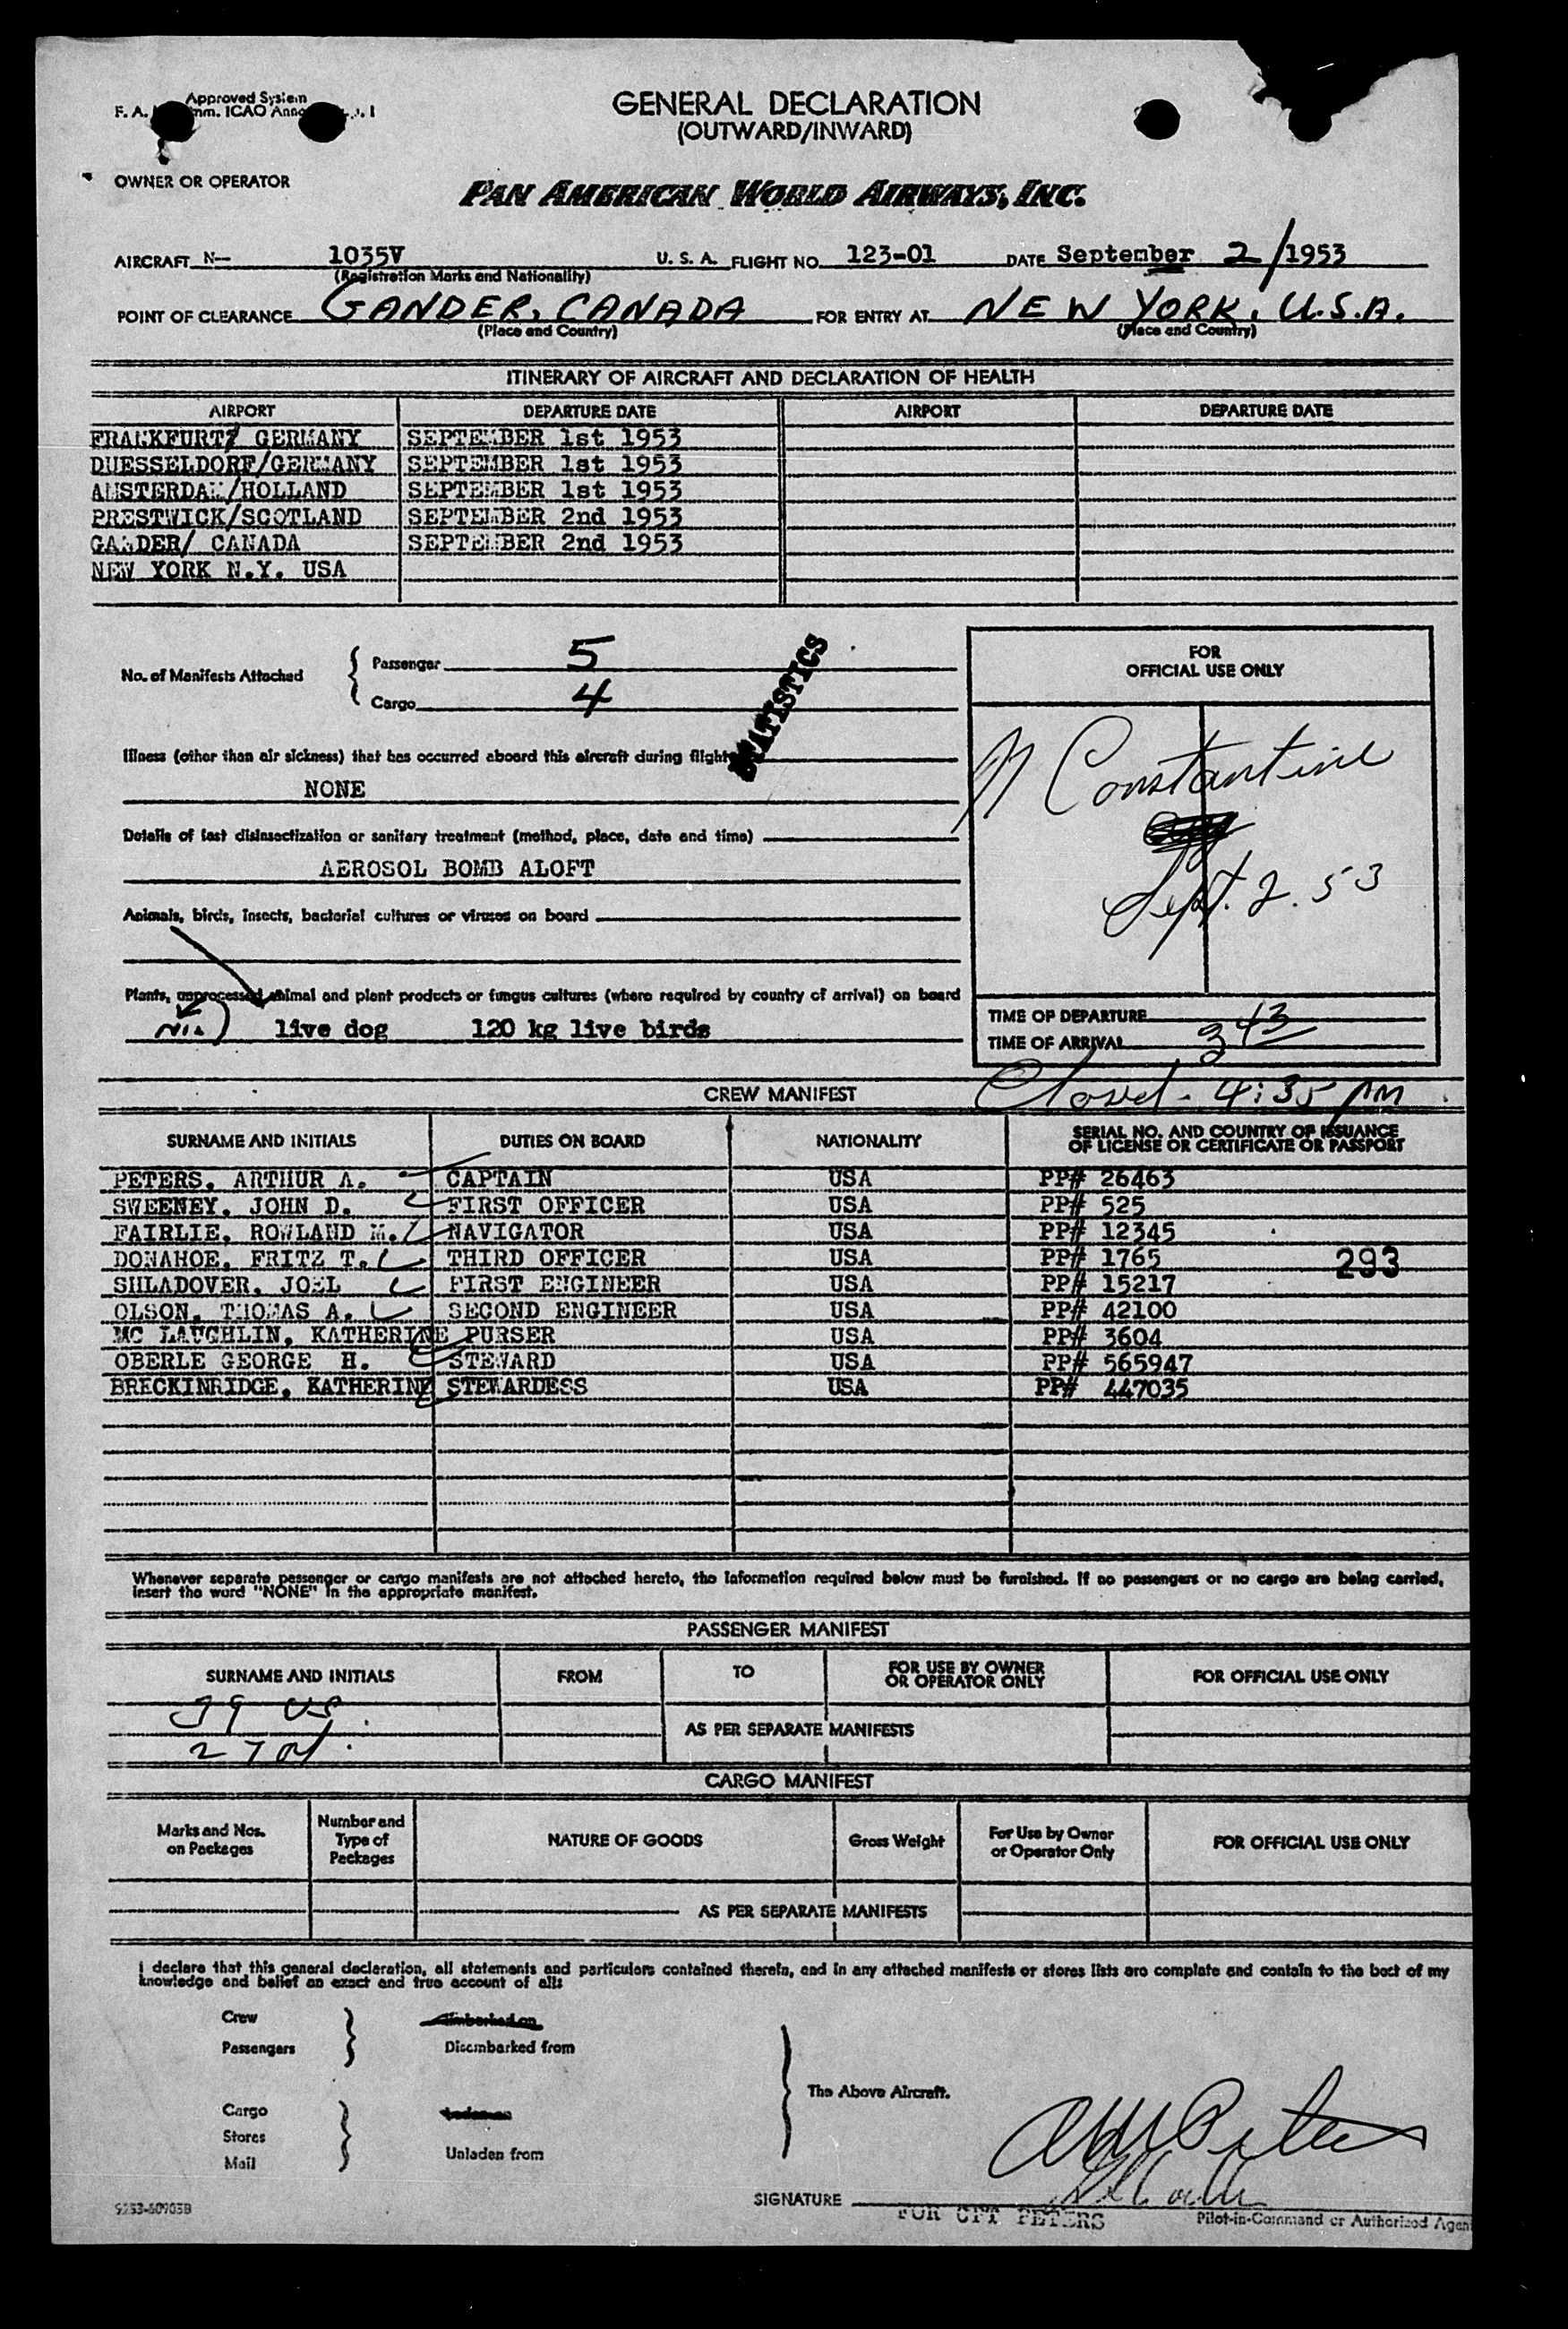 Approved System
F. A. ICAO
GENERAL DECLARATION
(OUTWARD/INWARD)
OWNER OR OPERATOR
PAN AMERICAN WORLD AIRWAYS, INC.
AIRCRAFT N— 1035V U. S. A. FLIGHT NO. 123-01 DATE September 2/1953
(Registration Marks and Nationality)
POINT OF CLEARANCE GANDER, CANADA FOR ENTRY AT NEW YORK, U.S.A.
(Place and Country) (Place and Country)
ITINERARY OF AIRCRAFT AND DECLARATION OF HEALTH
AIRPORT DEPARTURE DATE AIRPORT DEPARTURE DATE
FRANKFURT/ GERMANY SEPTEMBER 1st 1953
DUESSELDORF/GERMANY SEPTEMBER 1st 1953
AMSTERDAM/HOLLAND SEPTEMBER 1st 1953
PRESTWICK/SCOTLAND SEPTEMBER 2nd 1953
GANDER/ CANADA SEPTEMBER 2nd 1953
NEW YORK N.Y. USA
FOR
OFFICIAL USE ONLY
No. of Manifests Attached
Passenger 5
Cargo 4
STATISTICS
N Constantine
Sept. 2. 53
Illness (other than air sickness) that has occurred aboard this aircraft during flight
NONE
Details of last disinsectization or sanitary treatment (method, place, date and time)
AEROSOL BOMB ALOFT
Animals, birds, insects, bacterial cultures or viruses on board
Plants, unprocessed animal and plant products or fungus cultures (where required by country of arrival) on board
NIL) live dog 120 kg live birds
TIME OF DEPARTURE
TIME OF ARRIVAL 343
Closed - 4:35 PM
CREW MANIFEST
SURNAME AND INITIALS DUTIES ON BOARD NATIONALITY SERIAL NO. AND COUNTRY OF ISSUANCE
OF LICENSE OR CERTIFICATE OR PASSPORT
PETERS, ARTHUR A. CAPTAIN USA PP# 26463
SWEENEY, JOHN D. FIRST OFFICER USA PP# 525
FAIRLIE, ROWLAND M. NAVIGATOR USA PP# 12345
DONAHOE, FRITZ T. THIRD OFFICER USA PP# 1765 293
SHLADOVER, JOEL FIRST ENGINEER USA PP# 15217
OLSON, THOMAS A. SECOND ENGINEER USA PP# 42100
MC LAUGHLIN, KATHERINE PURSER USA PP# 3604
OBERLE GEORGE H. STEWARD USA PP# 565947
BRECKINRIDGE, KATHERINE STEWARDESS USA PP# 447035
Whenever separate passenger or cargo manifests are not attached hereto, the information required below must be furnished. If no passengers or no cargo are being carried,
insert the word "NONE" in the appropriate manifest.
PASSENGER MANIFEST
SURNAME AND INITIALS FROM TO FOR USE BY OWNER
OR OPERATOR ONLY FOR OFFICIAL USE ONLY
39 US.
AS PER SEPARATE MANIFESTS
CARGO MANIFEST
Marks and Nos.
on Packages
Number and
Type of
Packages
NATURE OF GOODS
Gross Weight
For Use by Owner
or Operator Only
FOR OFFICIAL USE ONLY
AS PER SEPARATE MANIFESTS
I declare that this general declaration, all statements and particulars contained therein, and in any attached manifests or stores lists are complete and contain to the best of my
knowledge and belief an exact and true account of all:
Crew Embarked on
Passengers Disembarked from
The Above Aircraft.
Cargo
Stores
Mail
Unladen from
SIGNATURE
FOR CPT PETERS
Pilot-in-Command or Authorized Agent
9253-60903B